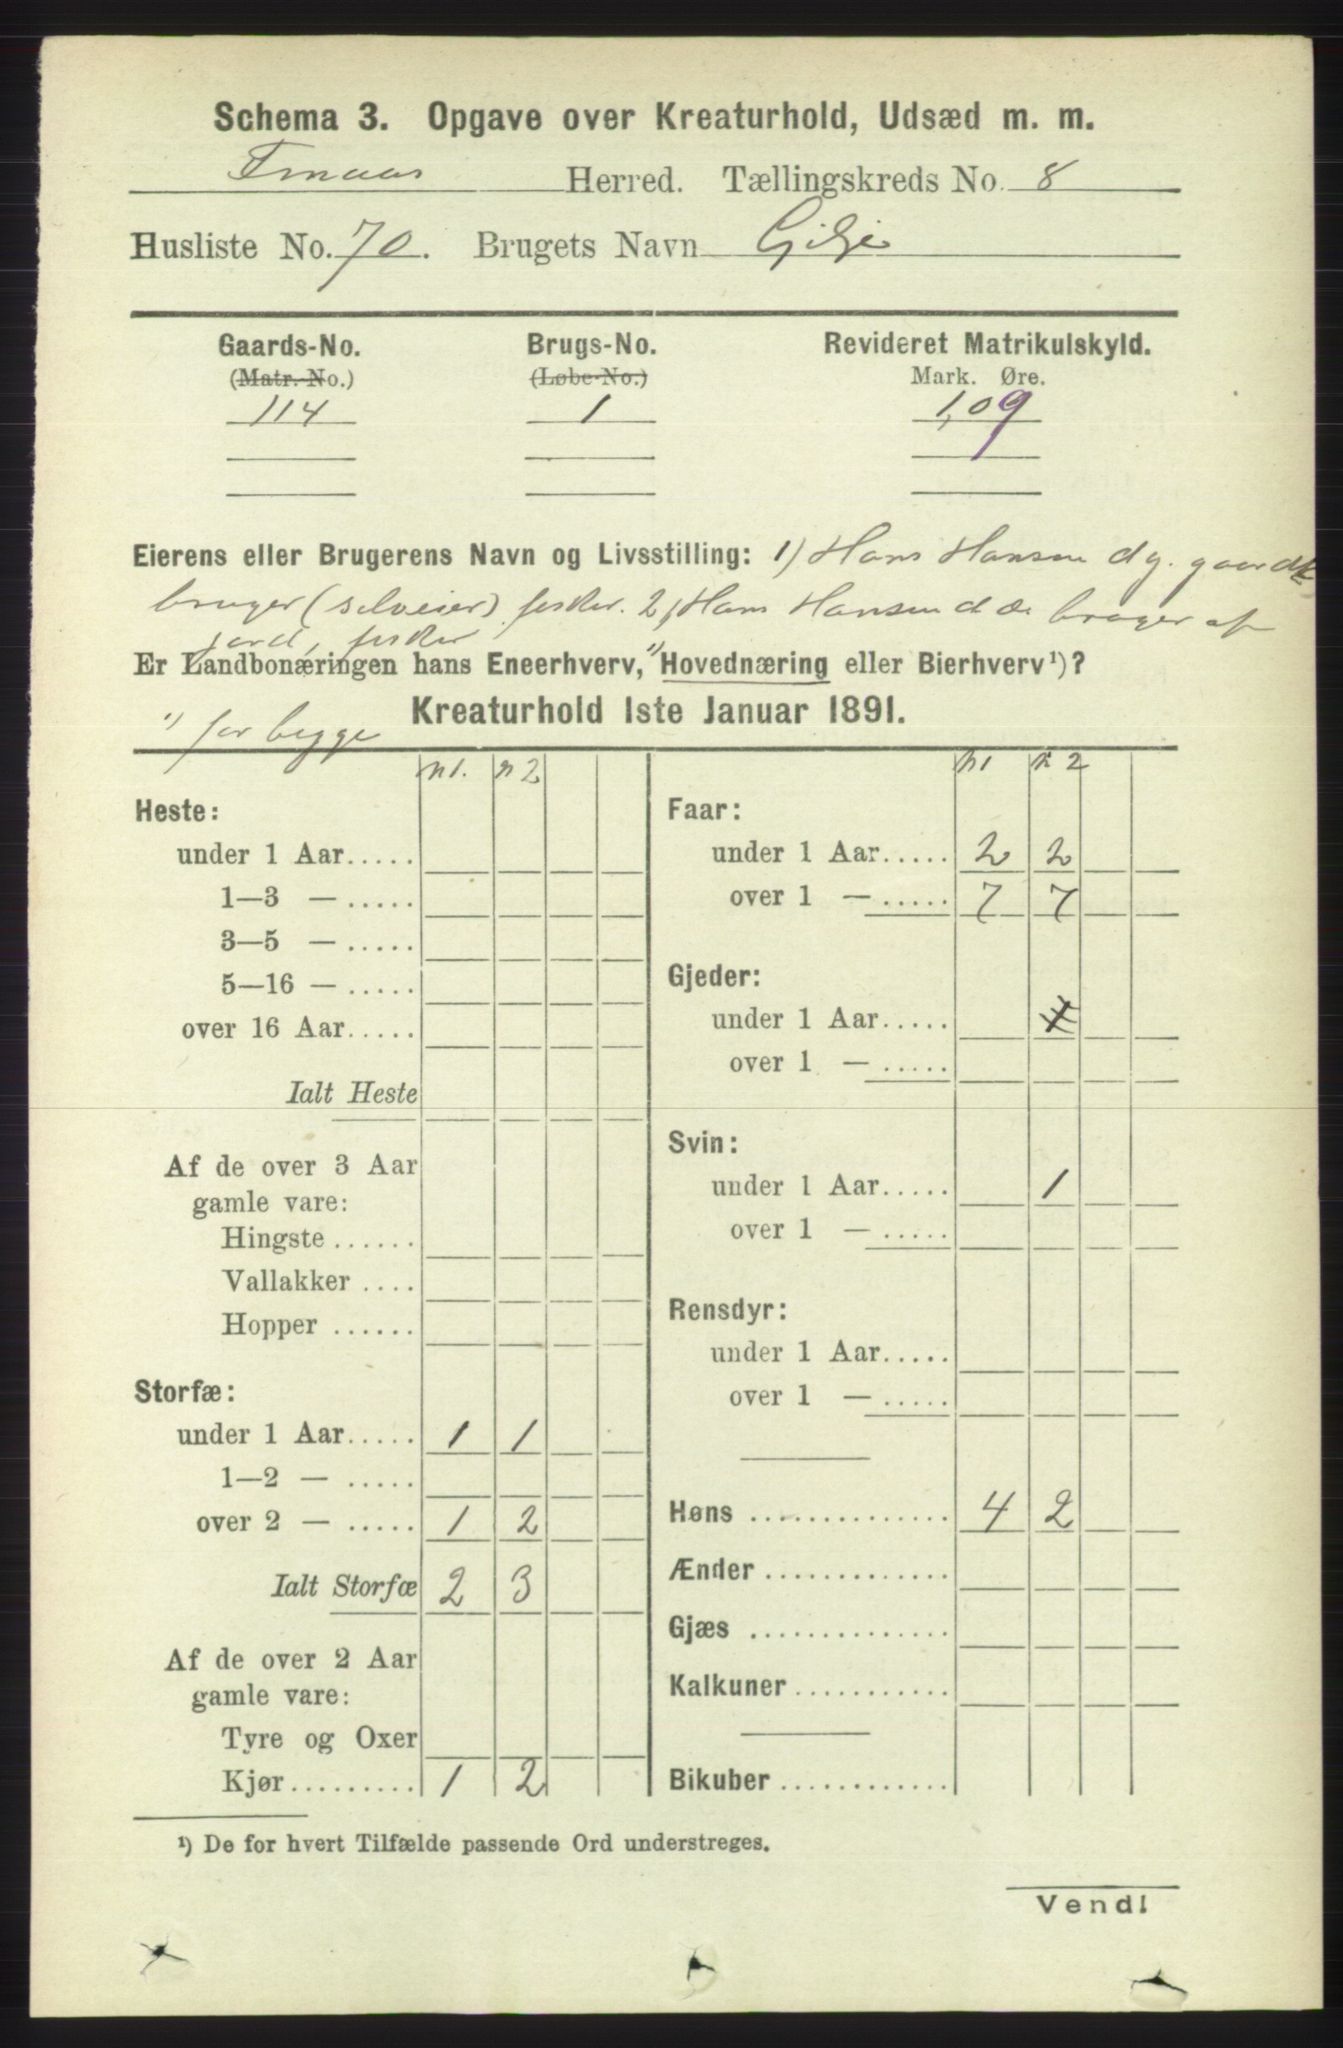 Schema 3. Opgave over Kreaturhold, Udsæd m. m.
Finaas Herred. Tællingskreds No. 8
Husliste No. 70. Brugets Navn Gilje
Gaards-No. Brugs-No. Revideret Matrikulskyld.
(Matr.-No.) (Løbe-No.) Mark. Øre.
114 1 1,09
Eierens eller Brugerens Navn og Livsstilling: 1) Hans Hansen d y. gaard
bruger (selveier) fisker. 2, Hans Hansen d æ. bruger af
jord, fisker
Er Landbonæringen hans Eneerhverv, "Hovednæring eller Bierhverv¹)?
Kreaturhold 1ste Januar 1891.
") for begge
n 1. n 2
Heste:
under 1 Aar.....
1—3 — .....
3—5 — .....
5—16 — .....
over 16 Aar.....
Ialt Heste
Af de over 3 Aar
gamle vare:
Hingste ......
Vallakker ....
Hopper ......
Storfæ:
under 1 Aar..... 1 1
1—2 — .....
over 2 — ..... 1 2
Ialt Storfæ 2 3
Af de over 2 Aar
gamle vare:
Tyre og Oxer
Kjør......... 1 2
n 1 n 2
Faar:
under 1 Aar..... 2 2
over 1 — ..... 7 7
Gjeder:
under 1 Aar.....
over 1 — .....
Svin:
under 1 Aar..... 1
over 1 — .....
Rensdyr:
under 1 Aar.....
over 1 — .....
Høns .............. 4 2
Ænder .............
Gjæs ..............
Kalkuner...........
Bikuber ............
¹) De for hvert Tilfælde passende Ord understreges.
Vend!